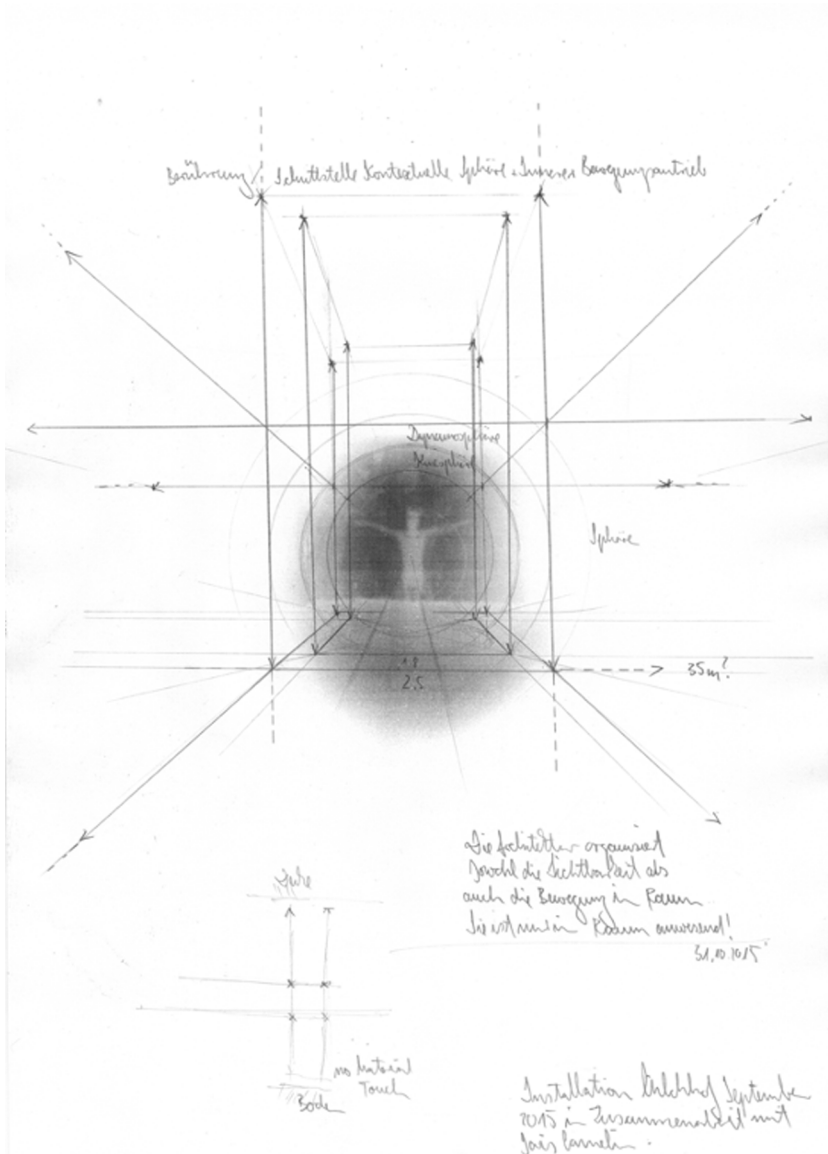 Berührung / Schnittstelle Kontextuelle Sphäre + Innerer Bewegungsantrieb
Dynamosphäre
Kinesphäre
Sphäre
1.8
2.5
35m?
Die Architektur organisiert
sowohl die Sichtbarkeit als
auch die Bewegung im Raum
Sie ist nur im Raum anwesend!
31.10.2015
no Material
Touch
Boden
Installation Milchhof September
2015 in Zusammenarbeit mit